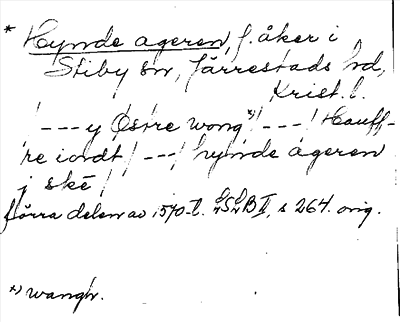 * Hynde ageren, f. åker i
Stiby sn, Järrestads hd,
Krist. l.
/ --- y Østre wong *) / --- / Hauff-
re iordt / --- / hynde ageren
j ské /
förra delen av 1570-t. LSLB II, s 264. orig.
*) wangh.